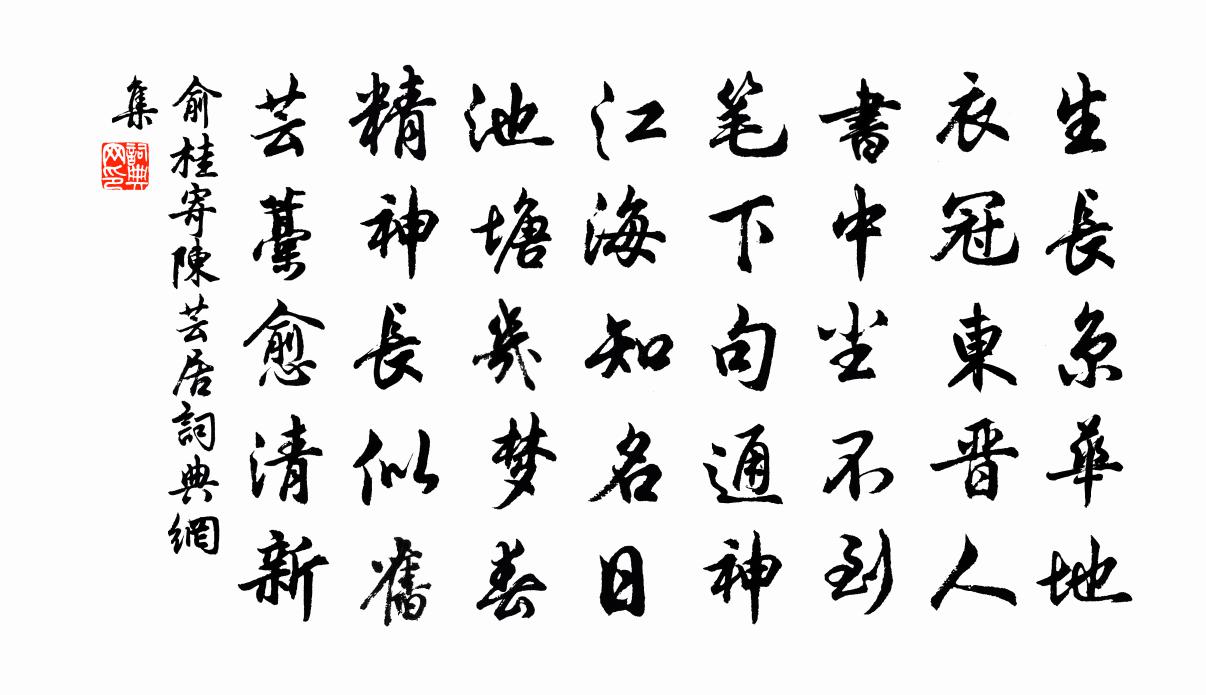 生長京華地
衣冠東晋人
書中尘不到
笔下句通神
江海知名日
池塘幾梦春
精神長似舊
芸藁愈清新
俞桂寄陳芸居詞典網
集
詞典网印